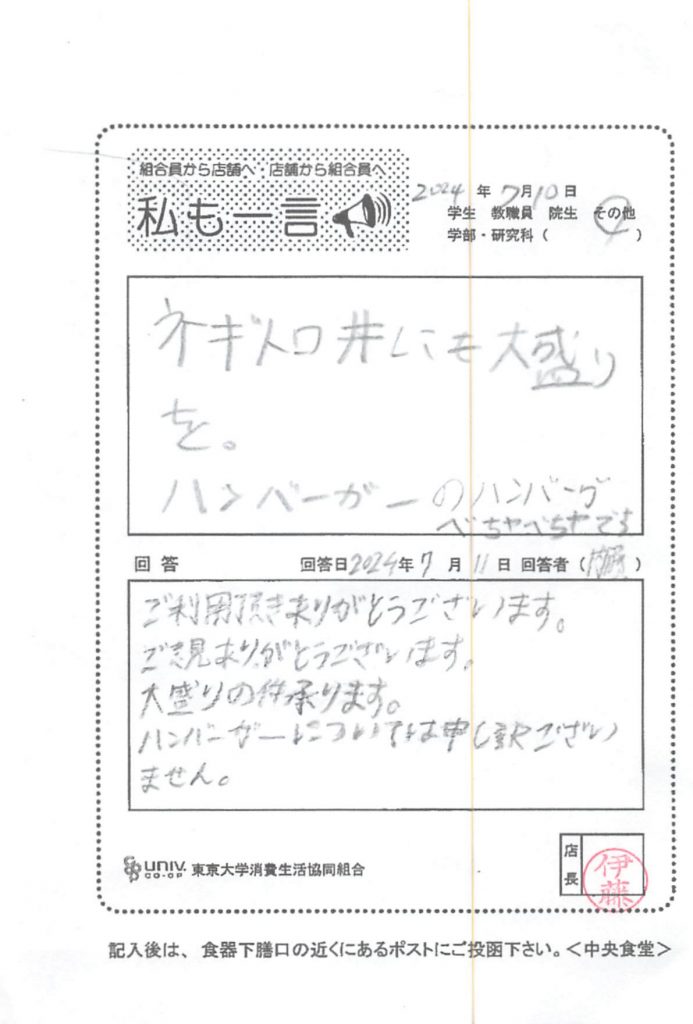 組合員から店舗へ・店舗から組合員へ
私も一言
2024 年 7月10日
学生 教職員 院生 その他
学部・研究科（ ）
ネギトロ丼にも大盛り
を。
ハンバーガーのハンバーグ
べちゃべちゃです
回答 回答日2024年7月11日 回答者（ ）
ご利用頂きありがとうございます。
ご意見ありがとうございます。
大盛りの件承ります。
ハンバーガーについては申し訳ござい
ません。
UNIV. CO-OP 東京大学消費生活協同組合
店長
伊藤
記入後は、食器下膳口の近くにあるポストにご投函下さい。＜中央食堂＞